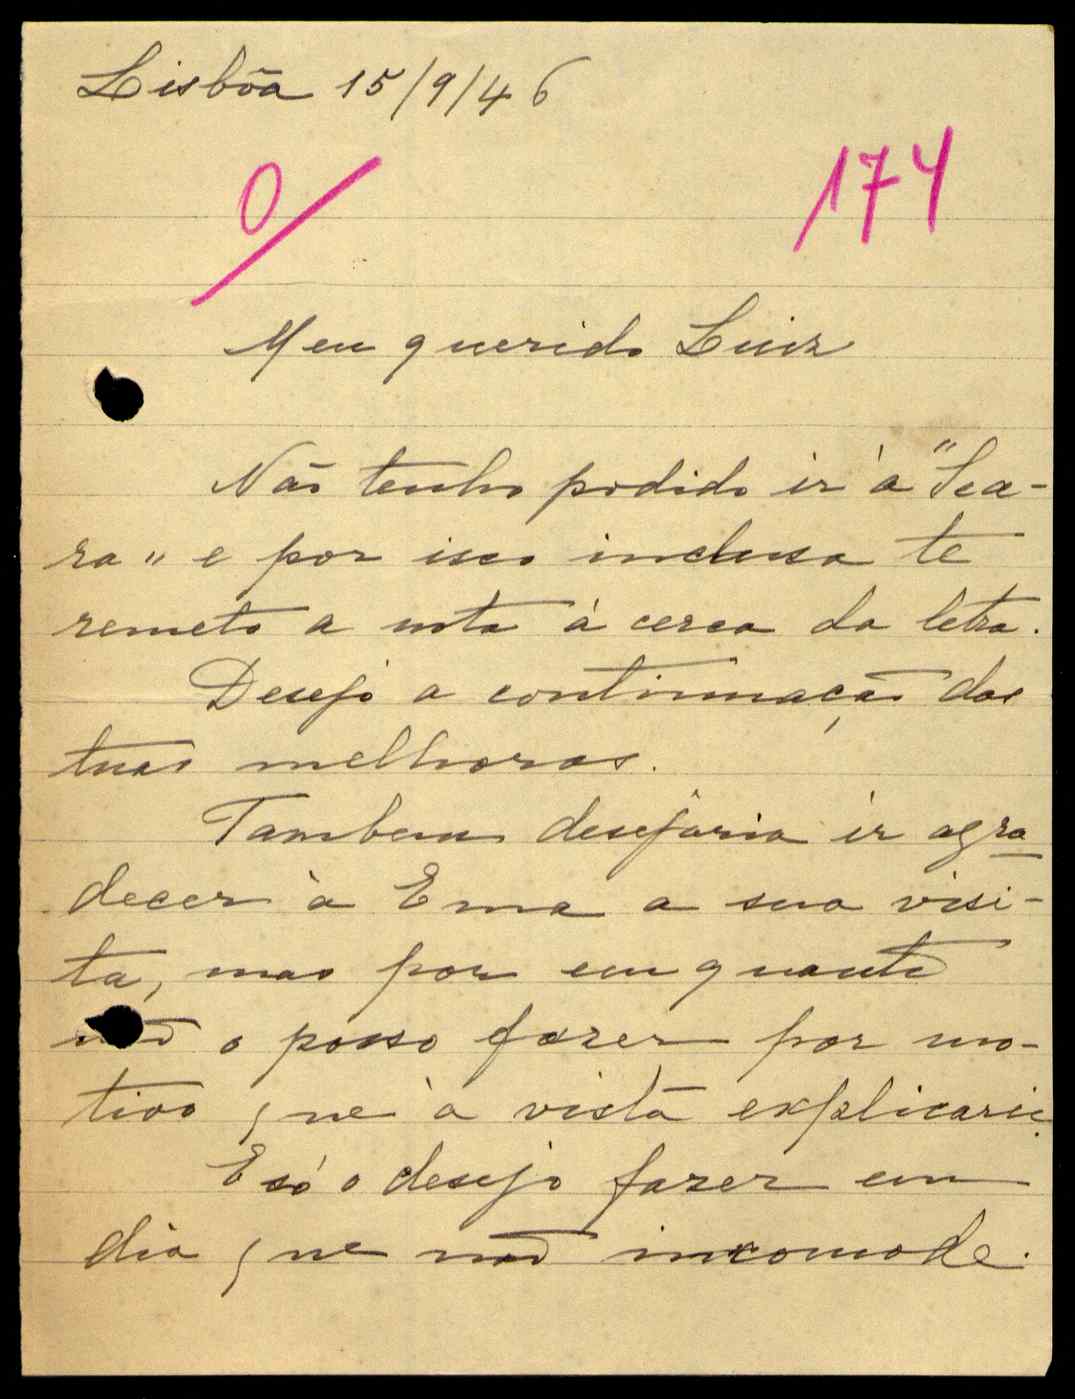 Lisbôa 15/9/46
0/ 174
Meu querido Luiz
Não tenho podido ir à "Sea-
ra" e por isso inclusa te
remeto a nota à cerca da letra.
Desejo a continuação das
tuas melhoras.
Tambem desejaria ir agra-
decer à Ema a sua visi-
ta, mas por emquanto
não o posso fazer por mo-
tivo que à vista explicarei.
E só o desejo fazer em
dia que não incomode.